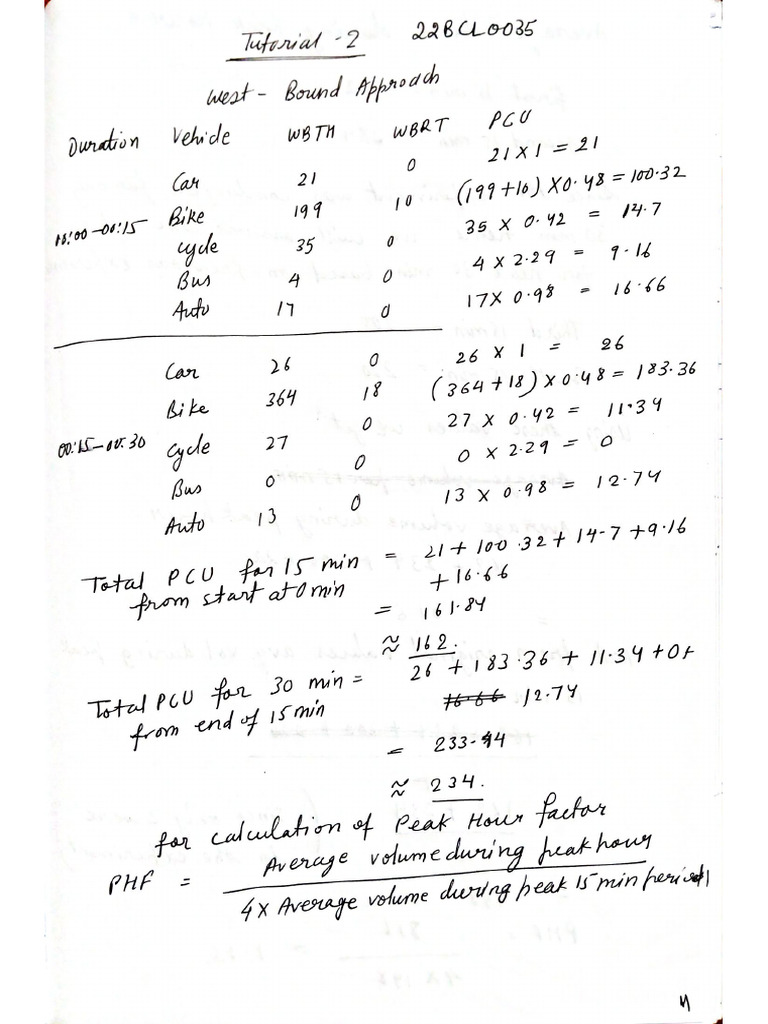 Tutorial - 2 22BCL0035
West - Bound Approach
Duration Vehicle WBTH WBRT PCU
Car 21 0 21 X 1 = 21
Bike 199 10 (199+10) X 0.48 = 100.32
00:15
cycle 35 0 35 X 0.42 = 14.7
Bus 4 0 4 X 2.29 = 9.16
Auto 17 0 17 X 0.98 = 16.66
Car 26 0 26 X 1 = 26
Bike 364 18 (364+18) X 0.48 = 183.36
00:15-00:30
Cycle 27 0 27 X 0.42 = 11.34
Bus 0 0 0 X 2.29 = 0
Auto 13 0 13 X 0.98 = 12.74
Total PCU for 15 min = 21 + 100.32 + 14.7 + 9.16
from start at 0 min + 16.66
= 161.84
≈ 162.
Total PCU for 30 min = 26 + 183.36 + 11.34 + 0 +
from end of 15 min 16.66 12.74
= 233.44
≈ 234.
for calculation of Peak Hour factor
PHF = Average volume during peak hour
4 X Average volume during peak 15 min period